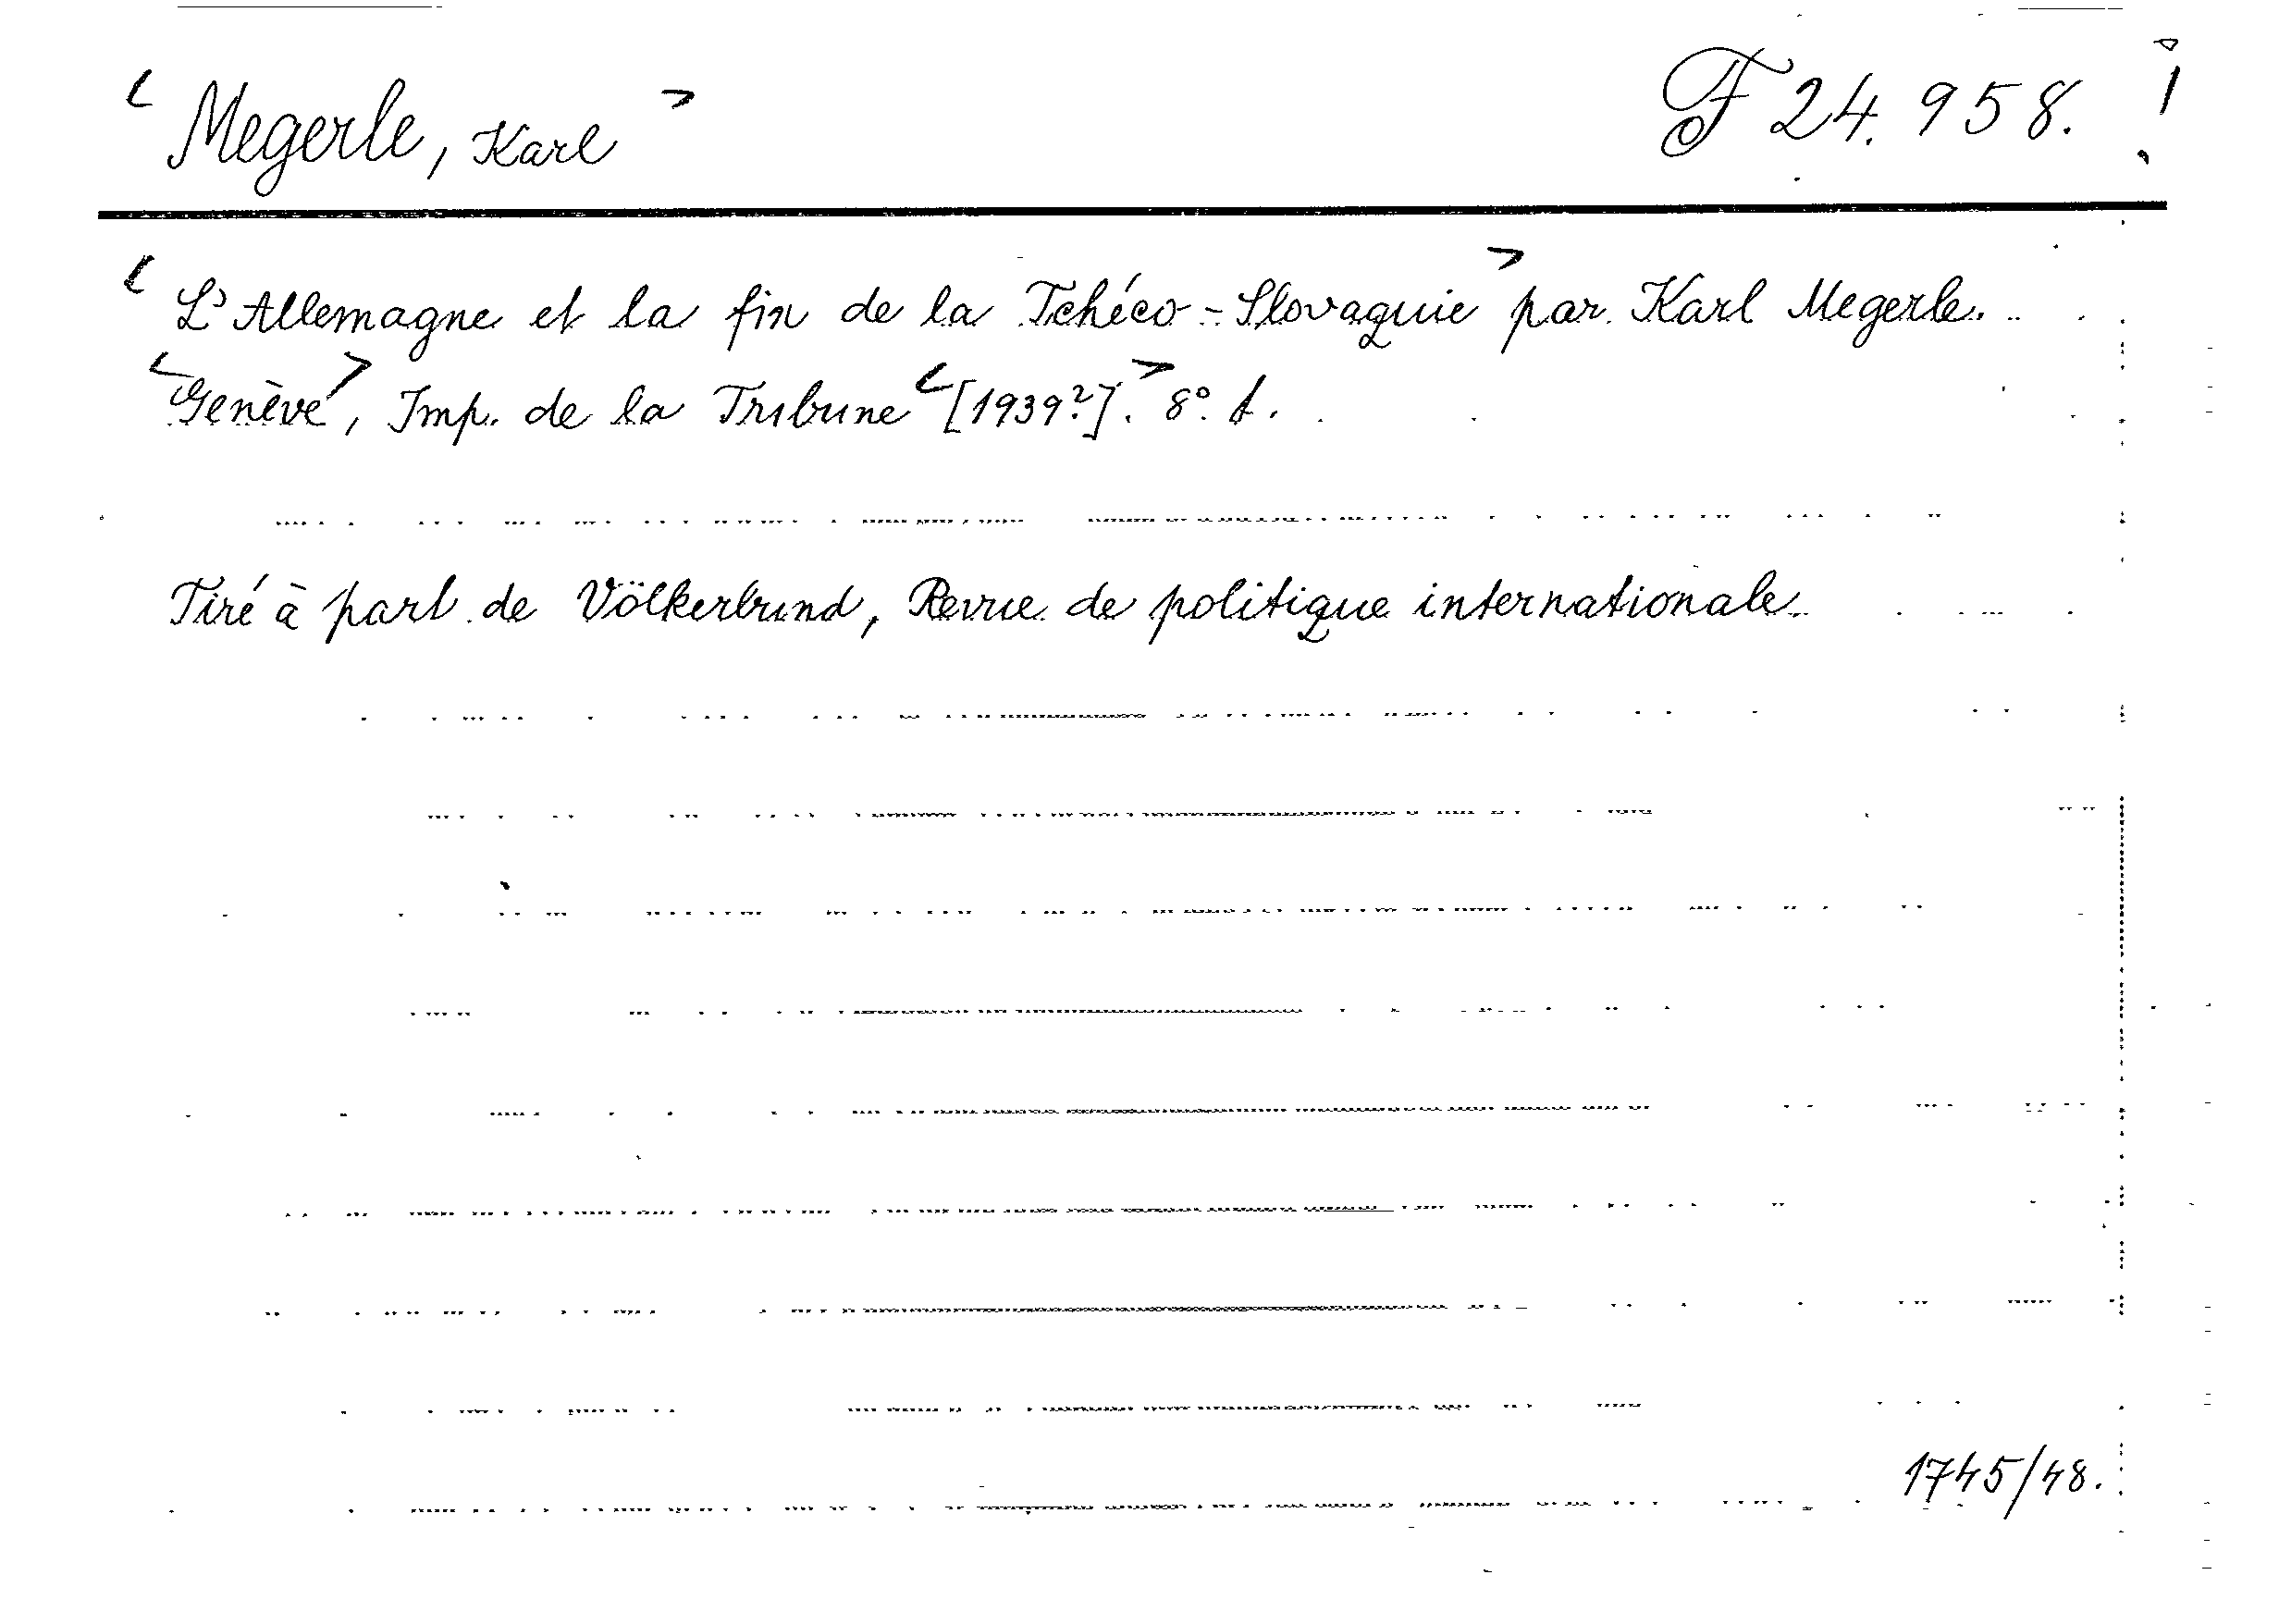 < Megerle, Karl > F 24.958.
< L'Allemagne et la fin de la Tchéco-Slovaquie > par Karl Megerle.
< Genève >, Imp. de la Tribune < [1939?]. > 8°.
Tiré à part de Völkerbund, Revue de politique internationale.
1745/48.